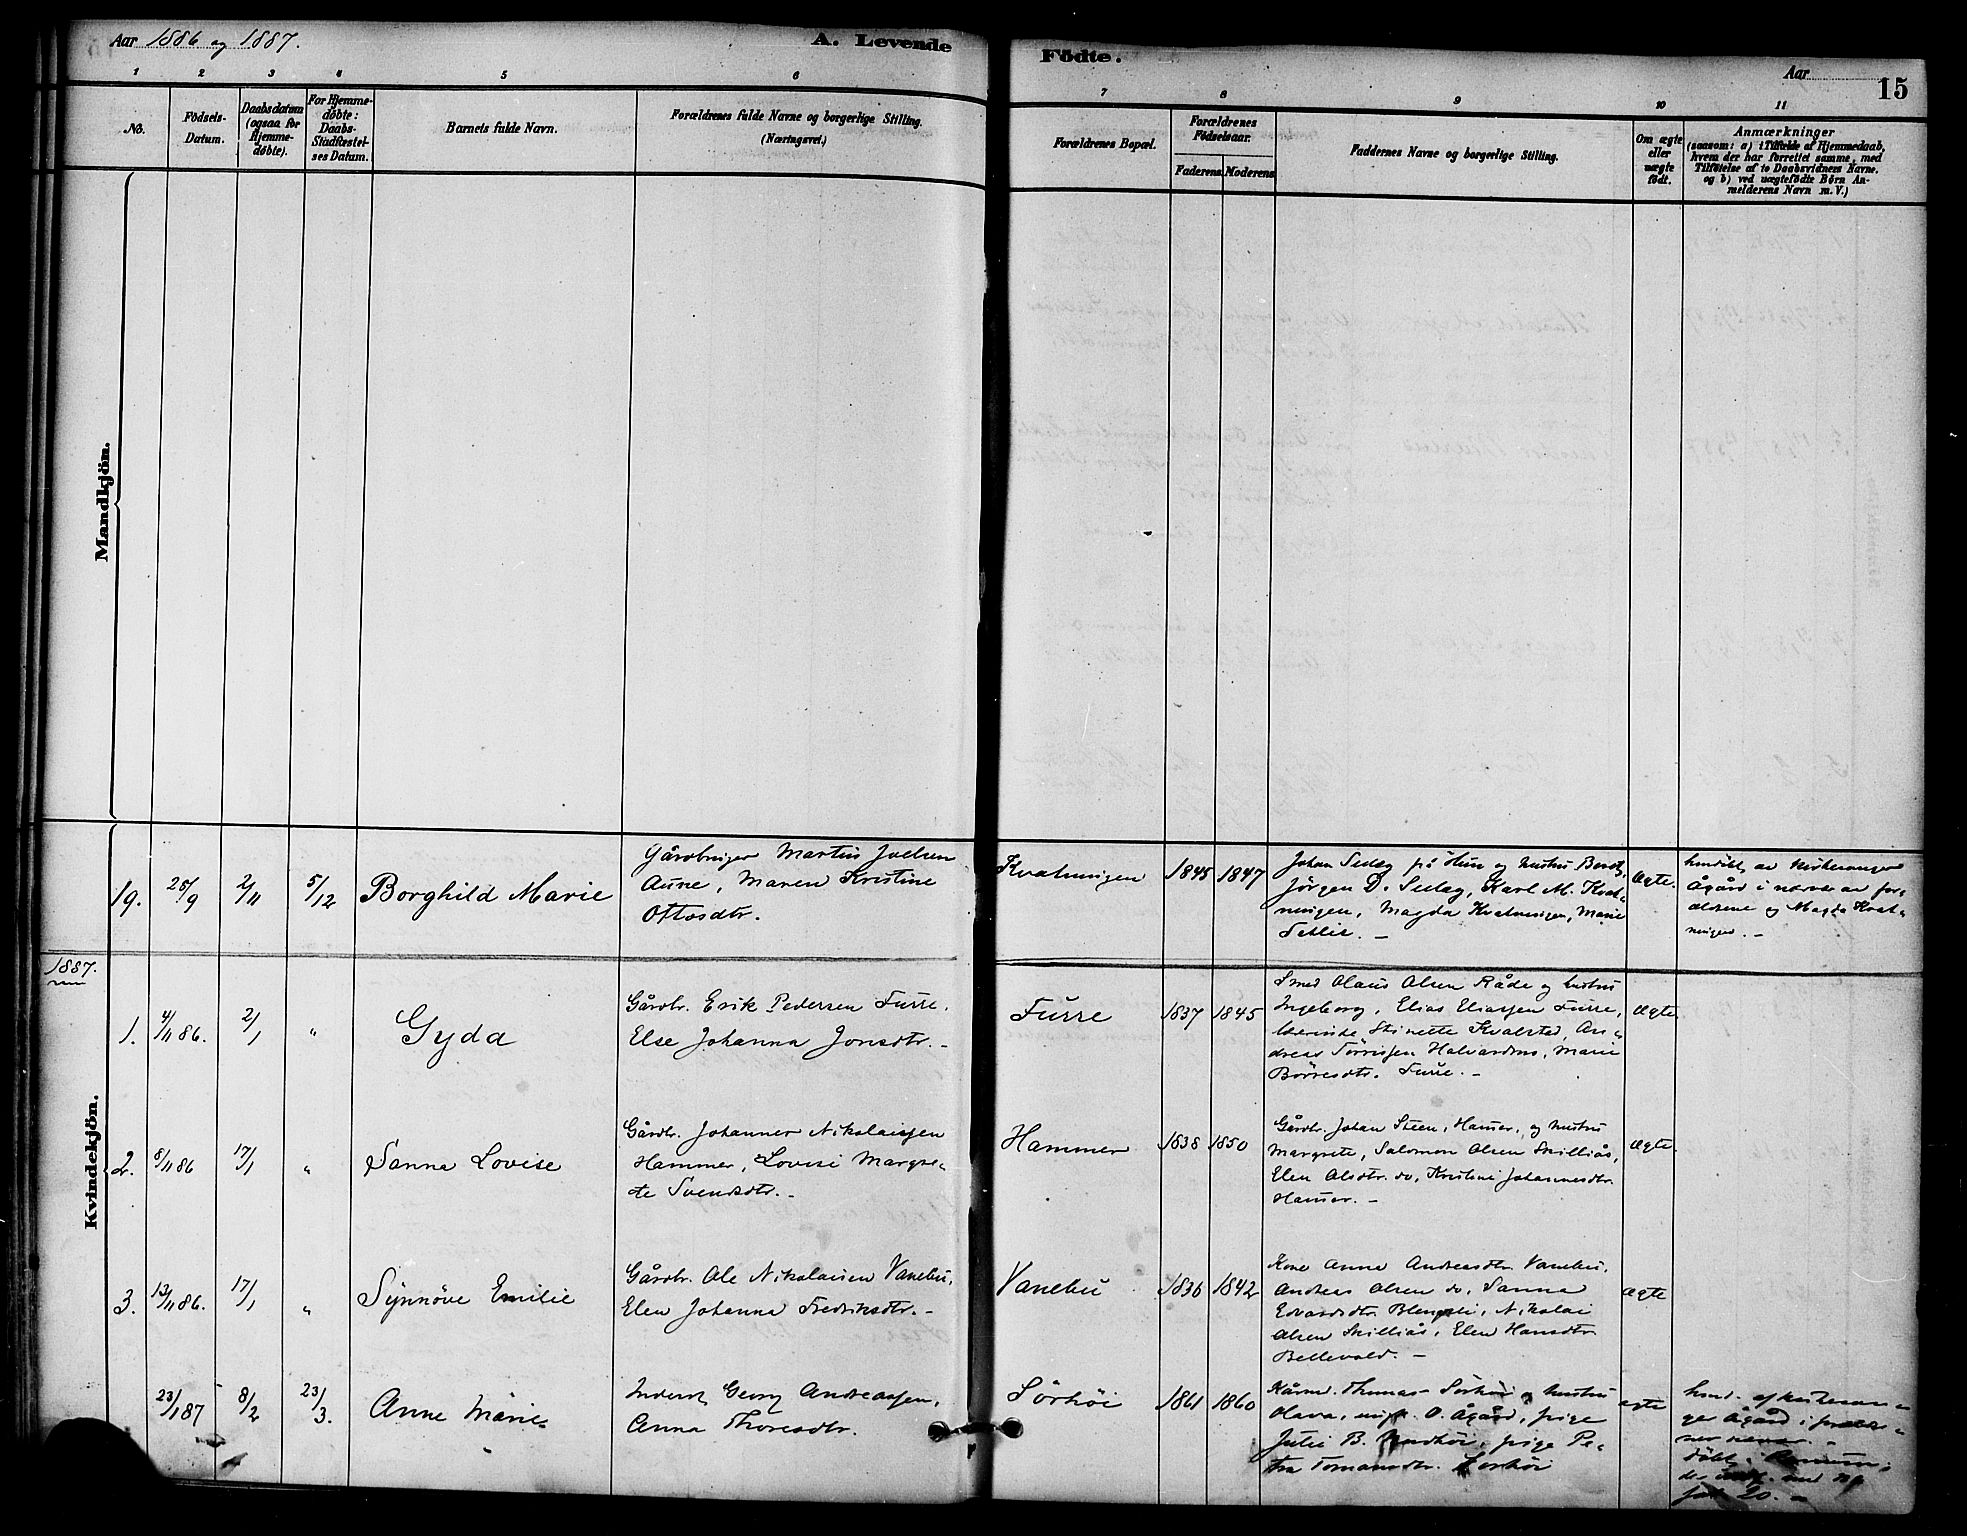 Aar 1886 og 1887.
A. Levende
Födte.
Aar
15
1 2 3 4 5 6 7 8 9 10 11
No.
Födsels-
Datum.
Daabsdatum
(ogsaa for
Hjemme-
döbte).
For Hjemme-
döbte:
Daabs-
Stadfæstel-
ses Datum.
Barnets fulde Navn.
Forældrenes fulde Navne og borgerlige Stilling.
(Næringsvei.)
Forældrenes Bopæl.
Forældrenes
Födselsaar.
Faderens
Moderens
Faddernes Navne og borgerlige Stilling.
Om ægte
eller
uægte
födt.
Anmærkninger
(saasom: a) i Tilfælde af Hjemmedaab,
hvem der har forrettet samme, med
Tilföielse af to Daabsvidners Navne.
og b) ved uægtefödte Börn An-
melderens Navn m. V.)
Mandkjön.
Kvindekjön.
19. 25/9 2/11 5/12 Borghild Marie
Gårdbruger Martin Joelsen
Aune, Maren Kristine
Ottosdtr.
Kvatningen 1845 1847
Johan Selæg på Hun og hustru Beret,
Jörgen D. Selæg, Karl M. Kvat-
ningen, Magda Kvatningen, Marie
Ægte.
Ågård i nærv. av for-
ældrene og Magda Kvat-
ningen. -
1887.
1. 4/11 86. 2/1 " Gyda
Gårdbr. Erik Pedersen Furre.
Else Johanna Jonsdtr. -
Furre 1837 1845
Smed Olaus Olsen Råde og hustru
Ingeborg, Elias Eliassen Furre,
Stinette Kvalsted, An-
dreas Halvardmo, Marie
Börresdtr. Furre. -
Ægte
2. 8/11 86 17/1 " Sanna Lovise
Gårdbr. Johannes Nikolaissen
Hammer, Lovise Margre-
te Svendsdtr. -
Hammer 1838 1850
Gårdbr. Johan Steen, Hamer, og hustru
Margrete, Salomon Olsen Skilliås,
Elen Olsdtr. do, Kristine Johannesdtr.
Hamer. -
Ægte.
3. 13/11 86. 17/1 " Synnöve Emilie
Gårdbr. Ole Nikolaisen Vanebu,
Elen Johanna Fredriksdtr. -
Vanebu 1836 1842
Kone Anne Andreasdtr. Vanebu,
Andreas Olsen do, Sanna
Edvardsdtr. Blengsli, Nikolai
Olsen Skilliås, Elen Hansdtr.
Bellevold. -
Ægte
23/1 87 8/2 23/3. Anne Marie
Inderst Georg Andreassen,
Anna Thoresdtr.
Sörhöi 1861 1860
Thomas Sörhöi og hustru
Olava, O. Ågård, pige
Julie B. Nordhöi, pige Pe-
tra Sörhöi
ægte
hmd. af kirkesan-
ger Ågård i
20. -